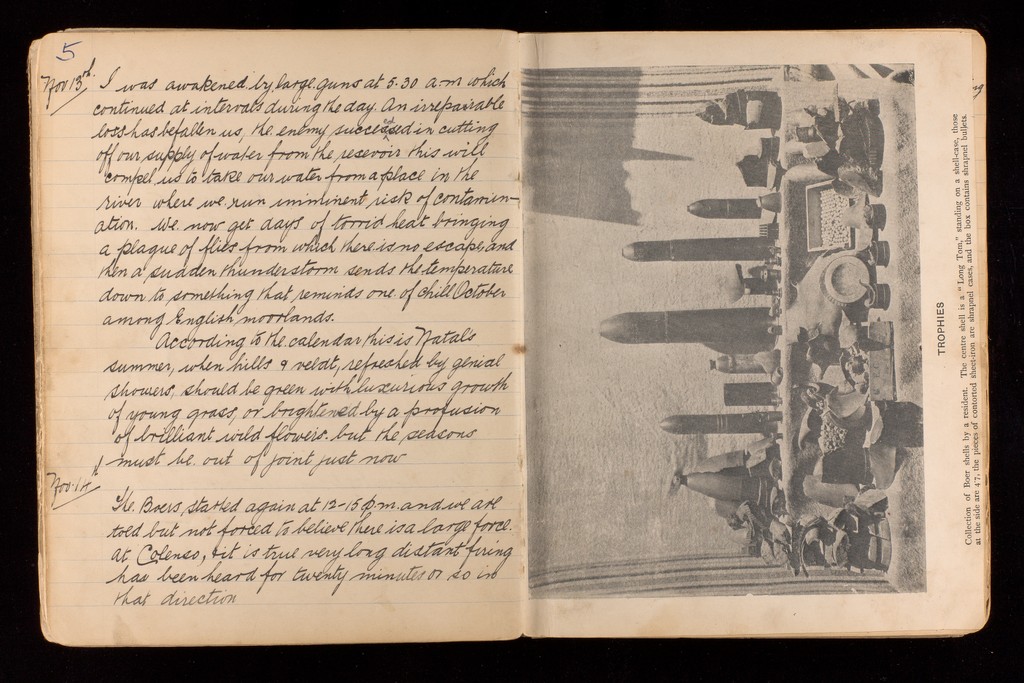 5
Nov 13th. I was awakened by large guns at 5.30 a.m which
continued at intervals during the day. An irrepairable
loss has befallen us, the enemy succeeded in cutting
off our supply of water from the reservoir this will
compel us to take our water from a place in the
river where we run imminent risk of contamin-
ation. We now get days of torrid heat bringing
a plague of flies from which there is no escape, and
then a sudden thunderstorm sends the temperature
down to something that reminds one of chill October
among English moorlands.
According to the calendar this is Natals
summer, when hills & veldt, refreshed by genial
showers, should be green with luxurious growth
of young grass, or brightened by a profusion
of brilliant wild flowers. but the seasons
must be out of joint just now
Nov. 14th
The Boers started again at 12-15 p.m. and we are
told but not forced to believe there is a large force
at Colenso, & it is true very long distant firing
has been heard for twenty minutes or so in
that direction
TROPHIES
Collection of Boer shells by a resident. The centre shell is a "Long Tom," standing on a shell-case, those
at the side are 4·7, the pieces of contorted sheet-iron are shrapnel cases, and the box contains shrapnel bullets.